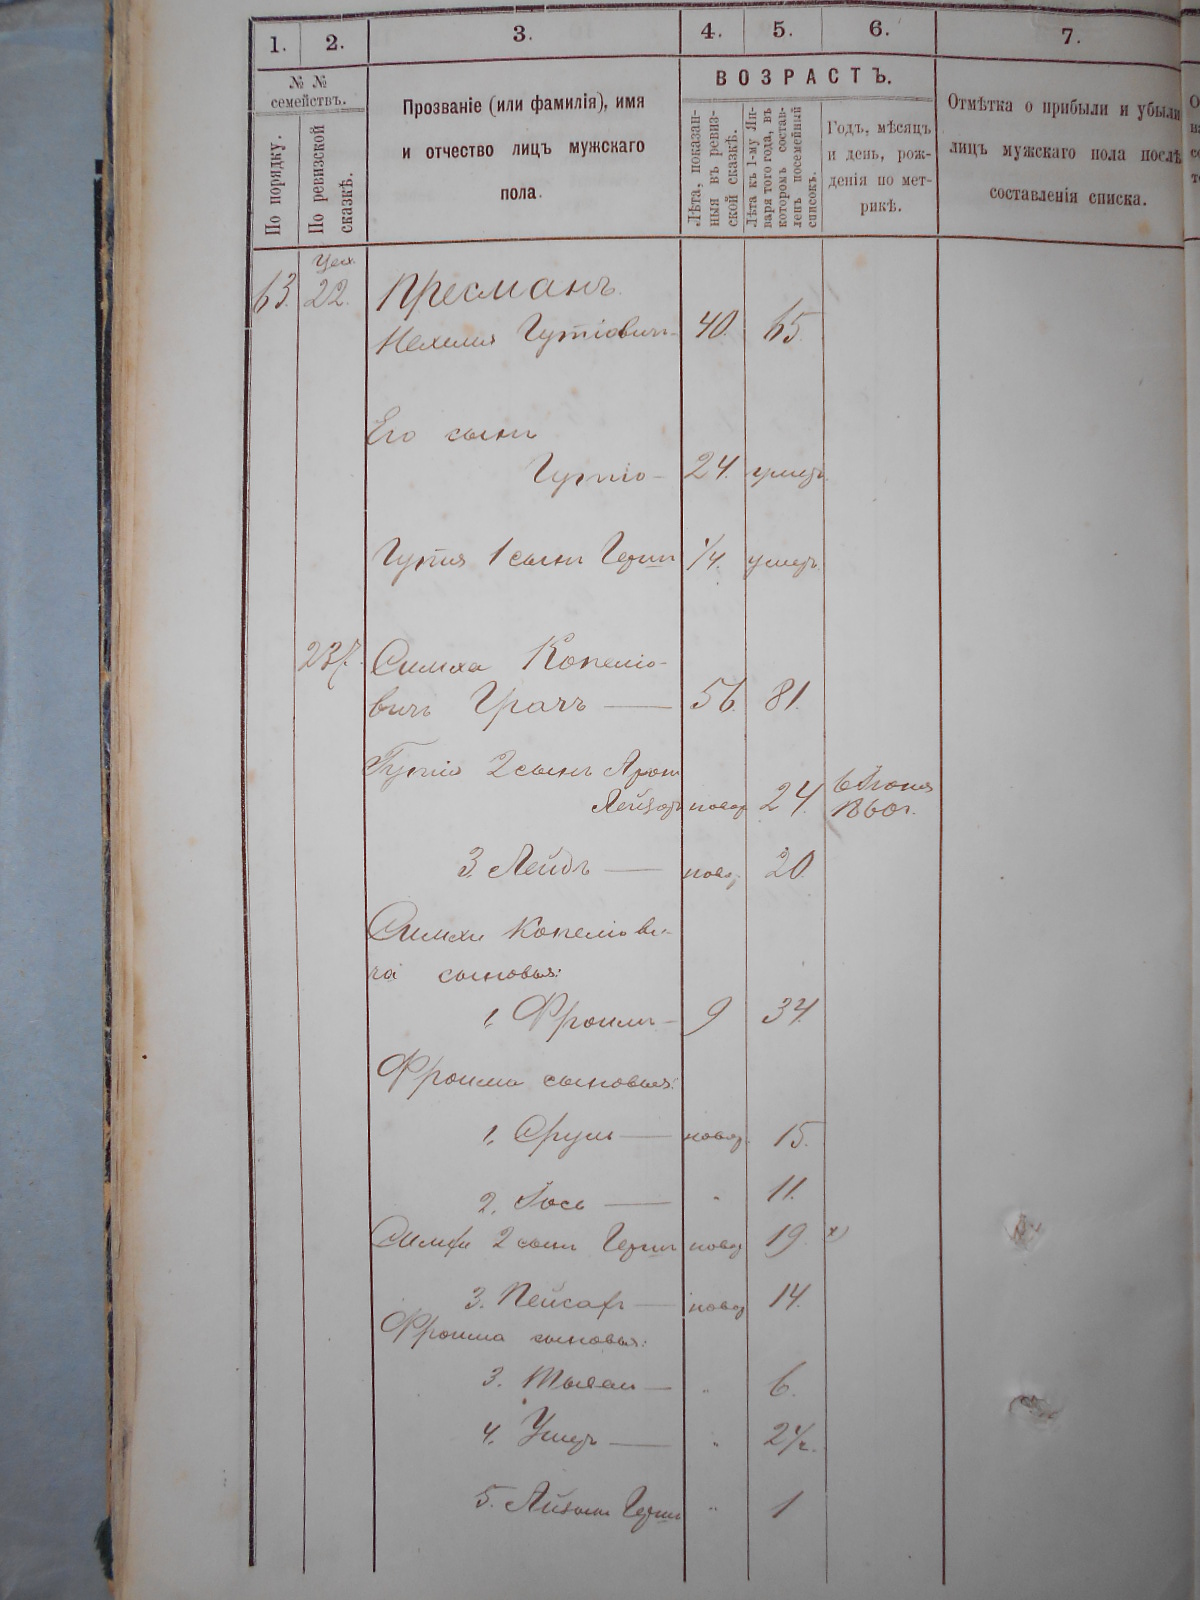 1. 2. 3. 4. 5. 6. 7.
№ № семействъ.
По порядку.
По ревизской сказкѣ.
Прозваніе (или фамилія), имя
и отчество лицъ мужскаго
пола.
ВОЗРАСТЪ.
Лѣта, показан-
ныя въ ревиз-
ской сказкѣ.
Лѣта къ 1-му Ян-
варя того года, въ
которомъ состав-
ленъ посемейный
списокъ.
Годъ, мѣсяцъ
и день, рож-
денія по мет-
рикѣ.
Отмѣтка о прибыли и убыли
лицъ мужскаго пола послѣ
составленія списка.
Цех.
63. 22. Пресманъ.
Нехемия Гутіовичъ 40. 65
Его сынъ
Гутіо 24. умеръ
Гутія 1 сынъ Герш 1/4. умеръ
237. Симха Копеліо-
вичъ Грачъ 56. 81.
Гутіо 2 сынъ Арон
Лейзоръ новор 24. 6 Июня
1860г.
3. Лейбъ новор. 20.
Симхи Копеліови-
ча сыновья:
1. Фроимъ 9 34.
Фроима сыновья:
1. Сруль новор. 15.
2. Йось " 11.
Симхи 2 сынъ Герш новор 19 х)
3. Пейсахъ новор 14.
Фроима сыновья:
3. " 6.
4. Ушеръ " 2 1/2.
5. Айзыкъ Герш " 1